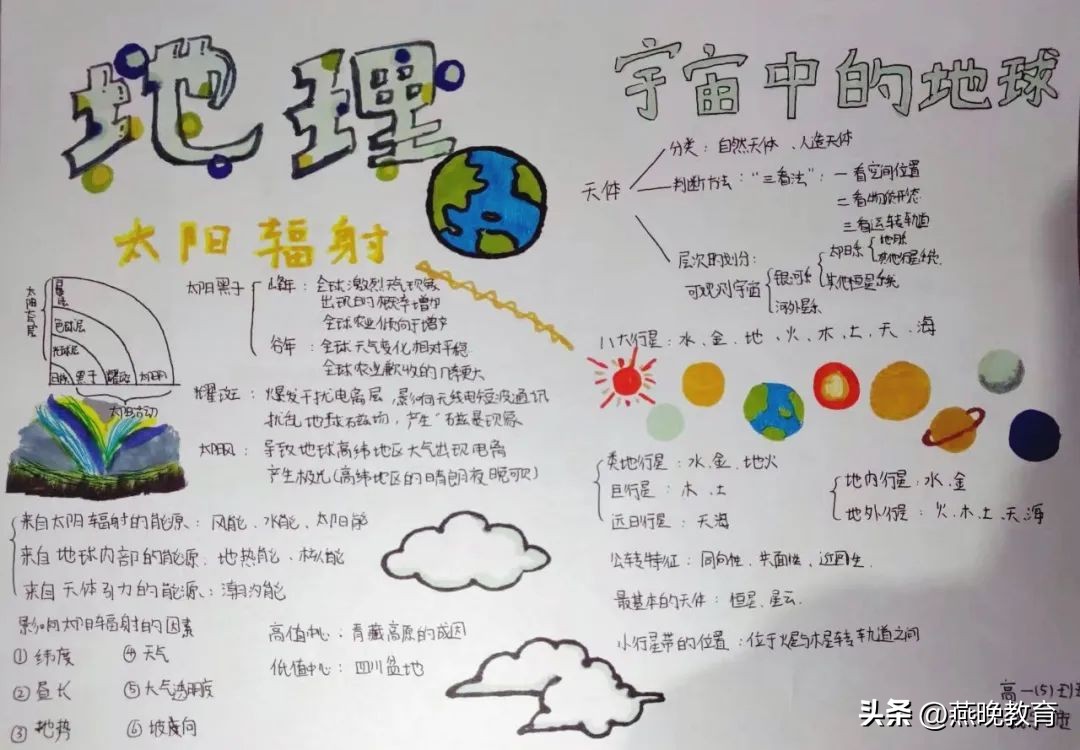 地理
太阳辐射
太阳大气层
日冕层
色球层
光球层
黑子 耀斑 太阳风
太阳活动
太阳黑子
峰年：全球激烈天气现象
出现的概率增加
全球农业倾向于增产
谷年：全球天气变化相对平稳
全球农业歉收的几率更大
耀斑：爆发干扰电离层，影响无线电短波通讯
扰乱地球磁场，产生"磁暴现象
太阳风：导致地球高纬地区大气出现电离
产生极光(高纬地区的晴朗夜晚可)
来自太阳辐射的能源：风能、水能、太阳能
来自地球内部的能源：地热能、核能
来自天体引力的能源：潮汐能
影响太阳辐射的因素
① 纬度 ④ 天气
② 昼长 ⑤ 大气透明度
③ 地势 ⑥ 坡度向
高值中心：青藏高原的成因
低值中心：四川盆地
宇宙中的地球
天体
分类：自然天体、人造天体
判断方法："三看法"：一看空间位置
二看物质形态
三看运转轨道
层次的划分：
可观测宇宙
银河系
太阳系
地月系
其他行星系统
其他恒星系统
河外星系
八大行星：水、金、地、火、木、土、天、海
类地行星：水、金、地火
巨行星：木、土
远日行星：天海
地内行星：水、金
地外行星：火、木、土、天、海
公转特征：同向性、共面性、近圆性
最基本的天体：恒星、星云
小行星带的位置：位于火星与木星转轨道之间
高一(5)
头条 @燕晚教育